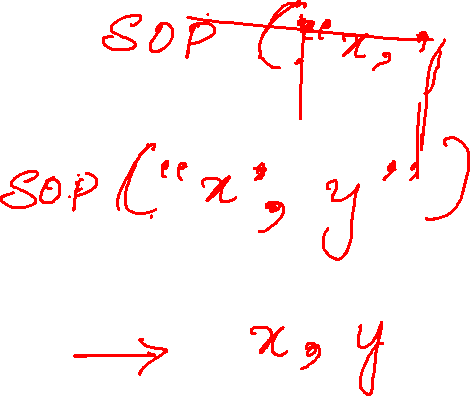 SOP ("x,
SOP ("x, y")
→ x, y